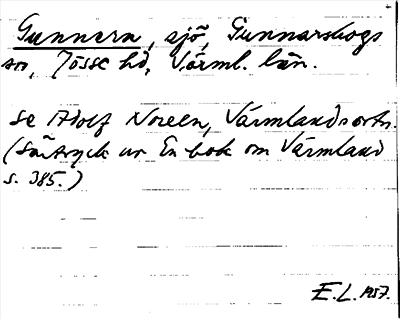 Gunnern, sjö, Gunnarskogs
sn, Jösse hd, Värml. län.
se Adolf Noreen, Värmlandsortn.
(Särtryck ur En bok om Värmland
s. 385.)
E.L. 1957.